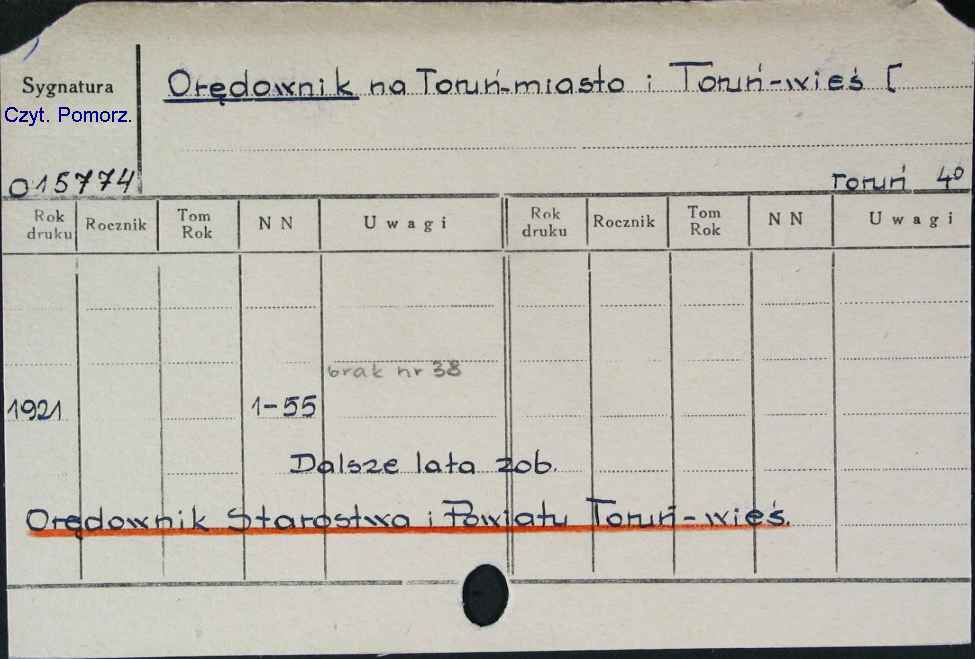 Sygnatura
Orędownik na Toruń-miasto i Toruń-wieś [
Czyt. Pomorz.
015774
Toruń 4⁰
Rok druku Rocznik Tom Rok N N Uwagi Rok druku Rocznik Tom Rok N N Uwagi
brak nr 38
1921 1-55
Dalsze lata zob.
Orędownik Starostwa i Powiatu Toruń-wieś.